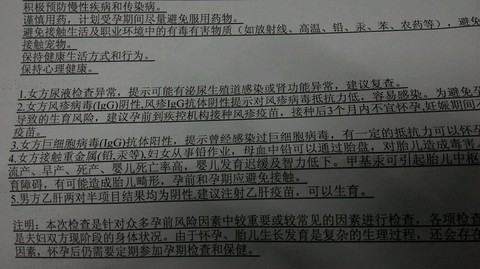 积极预防慢性疾病和传染病。
谨慎用药，计划受孕期间尽量避免服用药物。
避免接触生活及职业环境中的有毒有害物质（如放射线、高温、铅、汞、苯、农药等），避免
接触宠物。
保持健康生活方式和行为。
保持心理健康。
1.女方尿液检查异常，提示可能有泌尿生殖道感染或肾功能异常，建议复查。
2.女方风疹病毒(IgG)阴性,风疹IgG抗体阴性提示对风疹病毒抵抗力低，容易感染。为避免孕
导致的生育风险，建议孕前到疾控机构接种风疹疫苗，接种后3个月内不宜怀孕,妊娠期间
疫苗。
3.女方巨细胞病毒(IgG)抗体阳性，提示曾经感染过巨细胞病毒，有一定的抵抗力可以怀孕
4.女方接触重金属(铅,汞等),妇女从事铅作业，母血中铅可以通过胎盘，对胎儿造成毒害
流产、早产、死产、婴儿死亡率高，婴儿发育迟缓及智力低下。甲基汞可引起胎儿中枢
育障碍，有可能造成胎儿畸形，孕前和孕期应避免接触。
5.男方乙肝两对半项目结果均为阴性,建议注射乙肝疫苗，可以生育。
注明：本次检查是针对众多孕前风险因素中较重要或较常见的因素进行检查，各项检查
是夫妇双方现阶段的身体状况。由于怀孕、胎儿生长发育是复杂的生理过程，还会存在
因素，怀孕后仍需要定期参加孕期检查和保健。